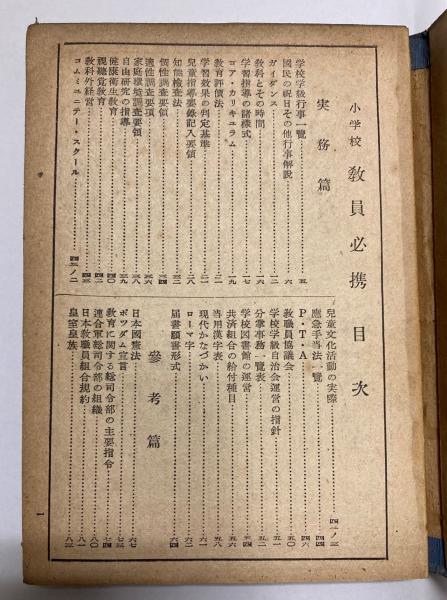 小学校 教員必携 目次
実務篇
学校学級行事一覧…………五
国民の祝日その他行事解説…………六
ガイダンス…………一二
教科とその時間…………一六
学習指導の諸様式…………一七
コア・カリキュラム…………一九
教育評価法…………二一
学習効果の判定基準…………二七
児童指導要録記入要領…………二八
知能検査法…………三二
個性調査要項
適性調査要項…………三六
家庭環境調査要領…………三八
自由研究の指導…………三九
健康衛生教育…………四〇
視聴覚教育…………四二
教科外経営…………四三
コムミュニテー・スクール…………四三ノ二
児童文化活動の実際…………四一ノ三
應急手当法一覧…………四四
P・T・A…………四六
教職員協議会…………五〇
学校学級自治会運営の指針
分掌事務一覧表…………五二
学校図書館の運営
共済組合の給付種目…………五六
当用漢字表…………五八
現代かなづかい…………六一
ローマ字…………六二
届書願書形式…………六四
參考篇
日本國憲法…………六七
ポツダム宣言…………七三
教育に関する総司令部の主要指令…………七四
連合軍総司令部の組織…………八〇
日本教職員組合規約…………八一
皇室皇族…………八三
一